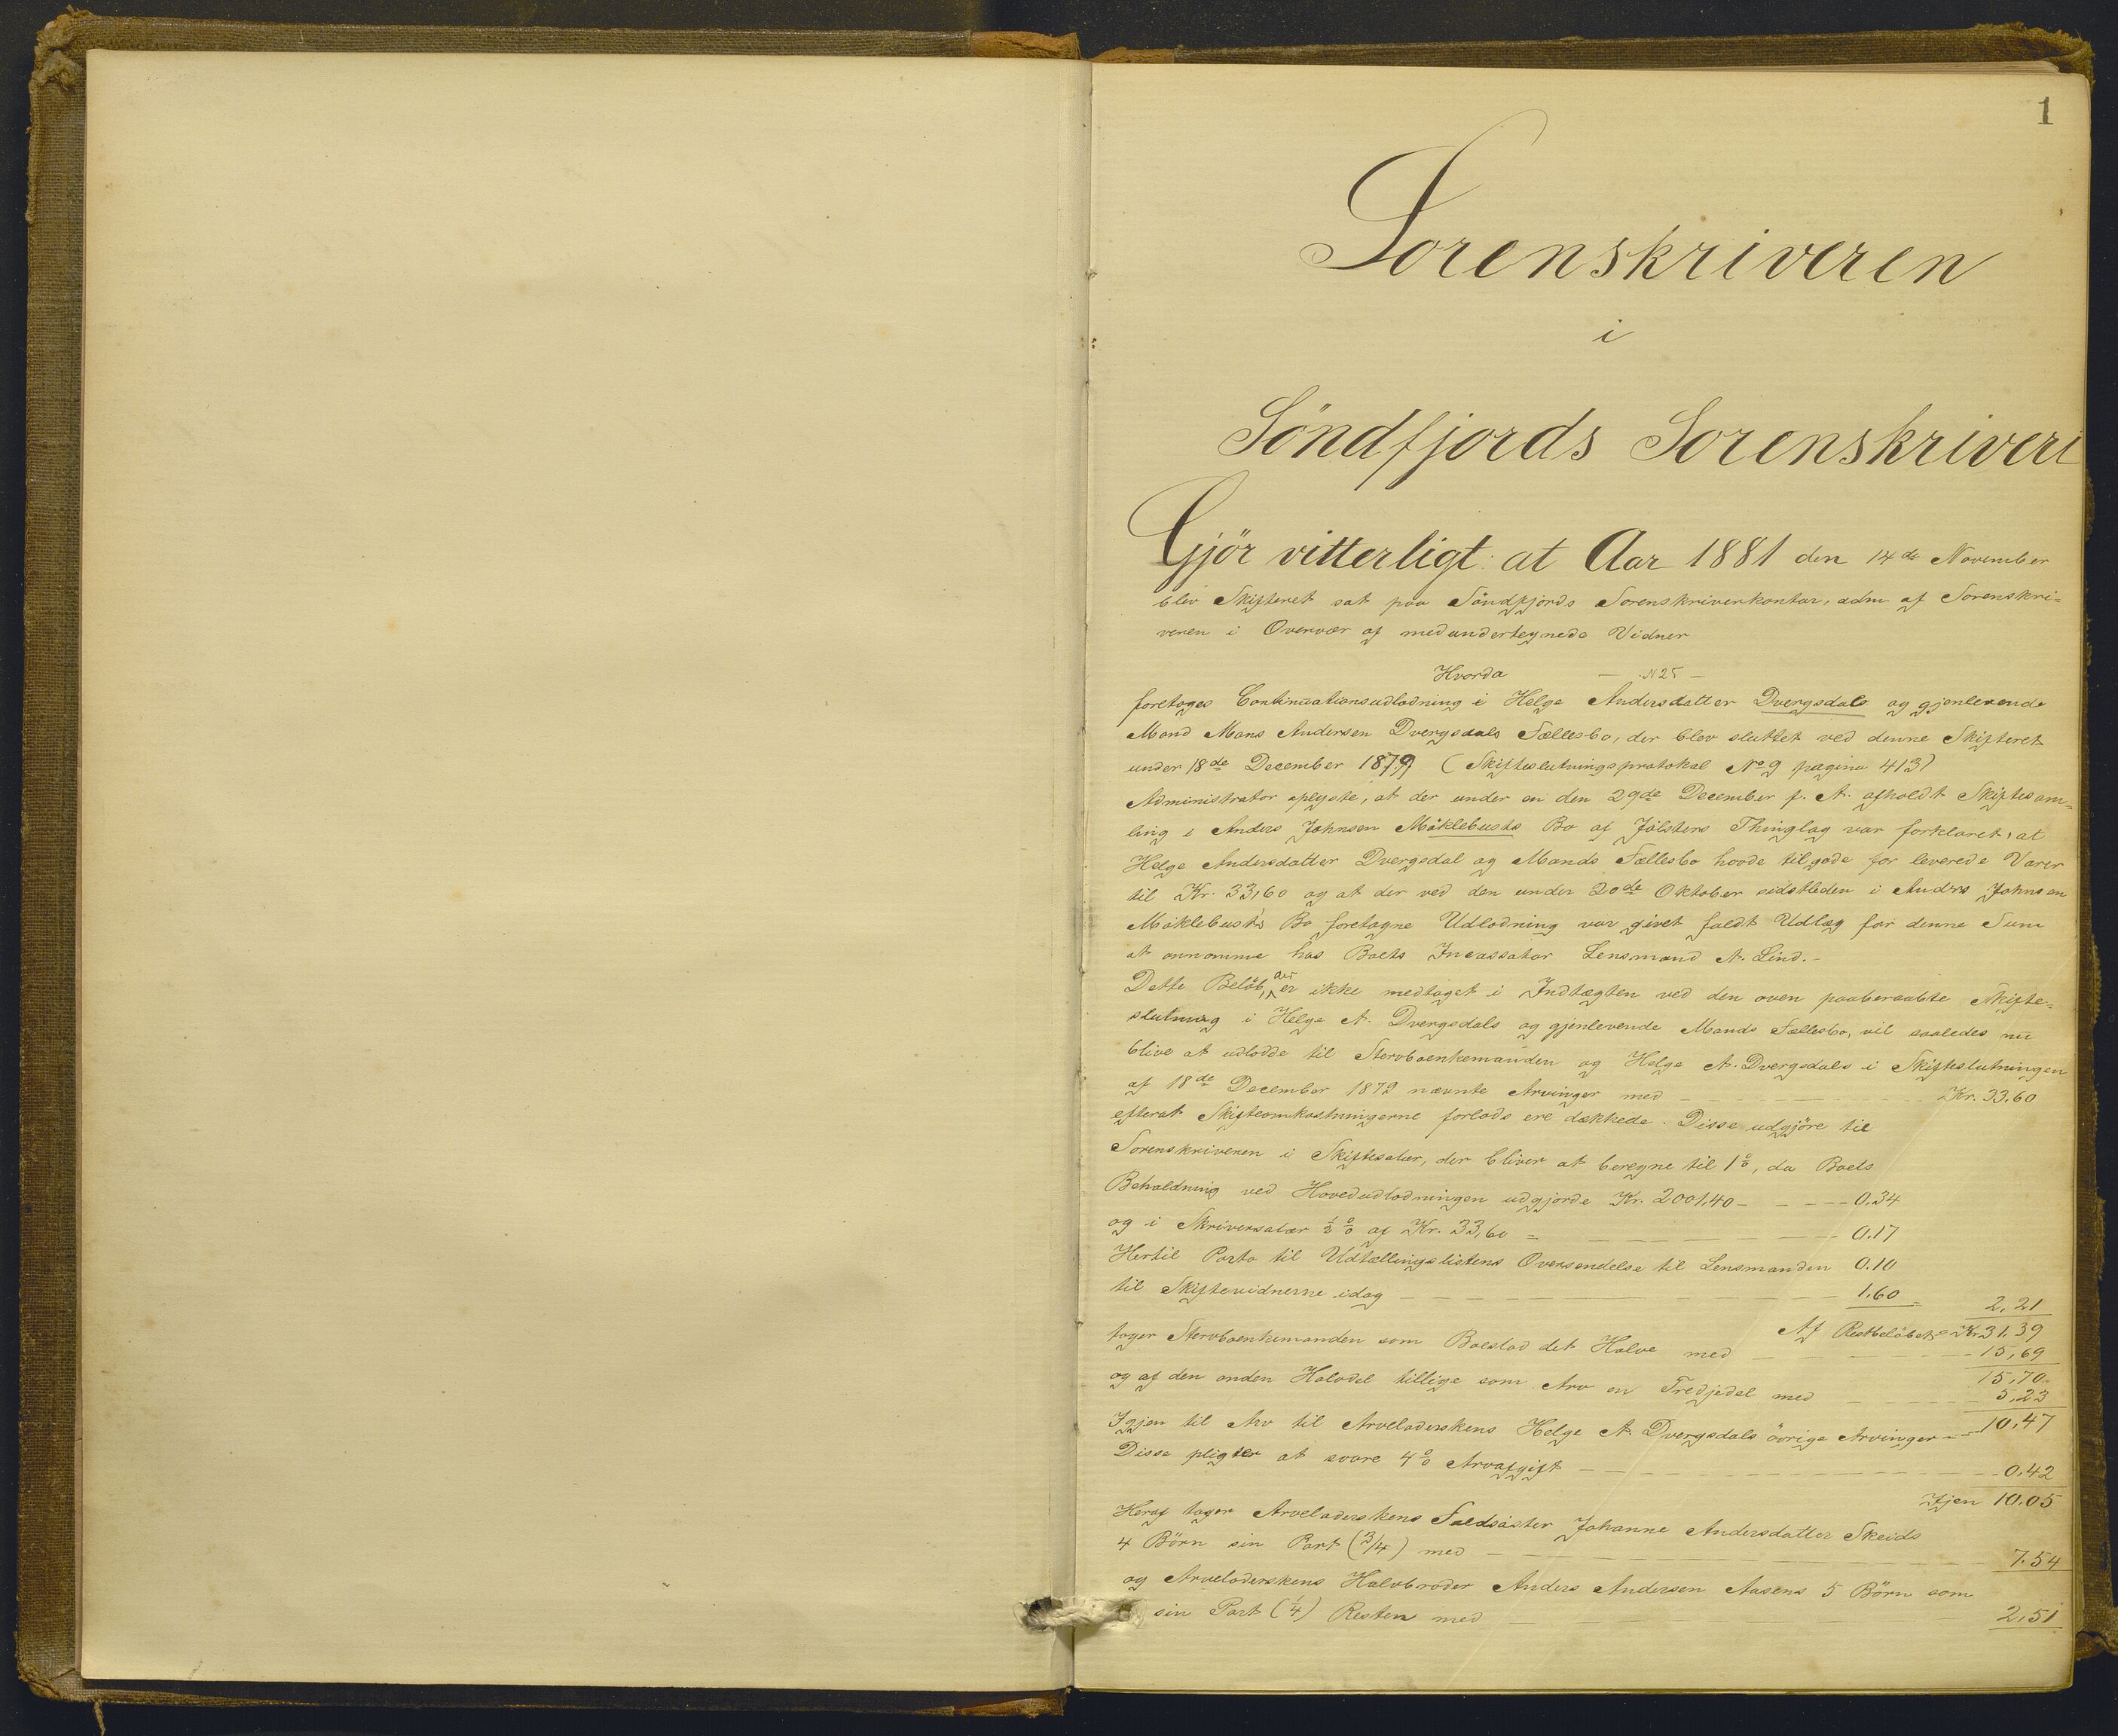 1
Sorenskriveren
i
Söndfjords Sorenskriveri
Gjör vitterligt at Aar 1881 den 14de November
blev Skifteret sat paa Söndfjords Sorenskriverkontor, adm. af Sorenskri=
veren i Overvær af medundertegnede Vidner
Hvorda — N 25 —
foretoges Continuationsudlodning i Helge Andersdatter Dvergsdals og gjenlevende
Mand Mons Andersen Dvergsdals Fællesbo, der blev sluttet ved denne Skifteret
under 18de December 1879 (Skifteslutningsprotokol No 9 pagina 413)
Administrator oplyste, at der under en den 29de December f. A. afholdt Skiftesam=
ling i Anders Johnsen Möklebusts Bo af Jölsters Thinglag var forklaret, at
Helge Andersdatter Dvergsdal og Mands Fællesbo havde tilgode for leverede Varer
til Kr. 33,60 og at der ved den under 20de Oktober sidstleden i Anders Johnsen
Möklebust's Bo foretagne Udlodning var givet fuldt Udlæg for denne Sum
at annamme hos Boets Incassator Lensmand A. Lind.-
Dette Belöb, der er ikke medtaget i Indtægten ved den oven paaberaabte Skifte=
slutning i Helge A. Dvergsdals og gjenlevende Mands Fællesbo, vil saaledes nu
blive at udlodde til Stervboenkemanden og Helge A. Dvergsdals i Skifteslutningen
af 18de December 1879 nævnte Arvinger med - - - Kr. 33.60
efterat Skifteomkostningerne forlods ere dækkede. Disse udgjöre til
Sorenskriveren i Skiftesalær, der bliver at beregne til 1%, da Boets
Beholdning ved Hovedudlodningen udgjorde Kr. 2001,40 - - - 0.34
og i Skriversalær ½ % af Kr. 33,60 = - - - 0.17
Hertil Porto til Udtællingslistens Oversendelse til Lensmanden 0.10
til Skiftevidnerne idag - - - 1.60 = 2,21
Af Restbelöbet = Kr. 31,39
tager Stervboenkemanden som Boeslod det Halve med - - - 15,69
15,70
og af den anden Halvdel tillige som Arv en Tredjedel med - - - 5,23
Igjen til Arv til Arveladerskens Helge A. Dvergsdals övrige Arvinger - - 10,47
Disse pligter at svare 4 % Arvafgift - - - 0.42
Igjen 10.05
Heraf tager Arveladerskens Fuldsöster Johanne Andersdatter Skeids
4 Börn sin Part (3/4) med - - - 7.54
og Arveladerskens Halvbroder Anders Andersen Aasens 5 Börn som
sin Part (1/4) Resten med - - - 2,51